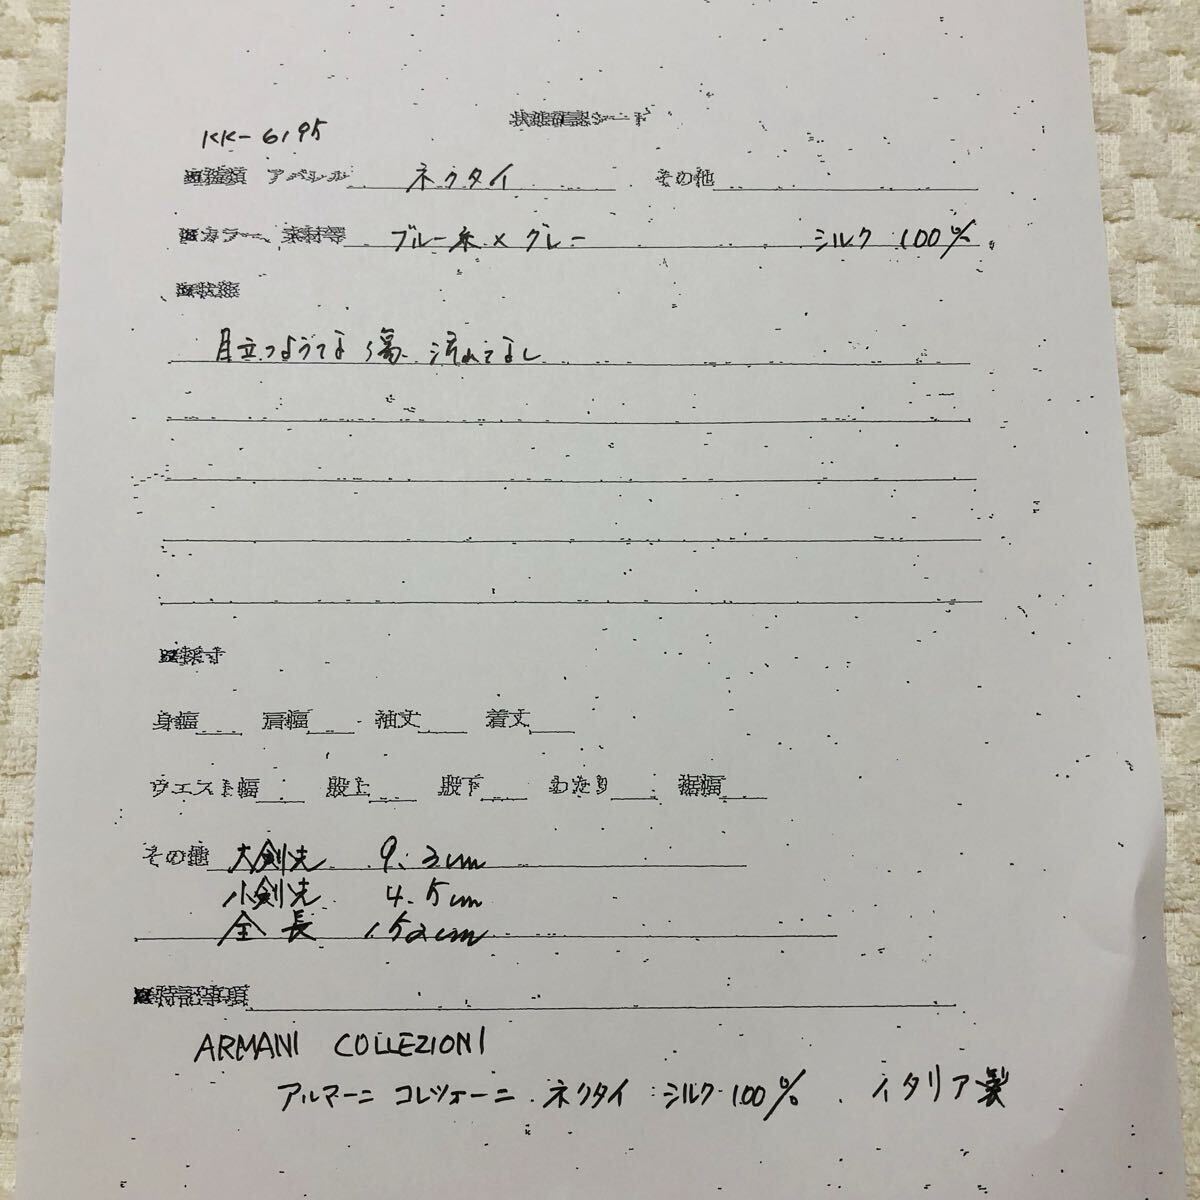 状態確認シート
KK-6195
※種類 アパレル ネクタイ その他
※カラー、素材等 ブルー系×グレー シルク100%
※状態
目立つような傷、汚れなし
※採寸
身幅 肩幅 袖丈 着丈
ウエスト幅 股上 股下 わたり 裾幅
その他 大剣先 9.3cm
小剣先 4.5cm
全長 152cm
※特記事項
ARMANI COLLEZIONI
アルマーニ コレツォーニ ネクタイ シルク100% イタリア製